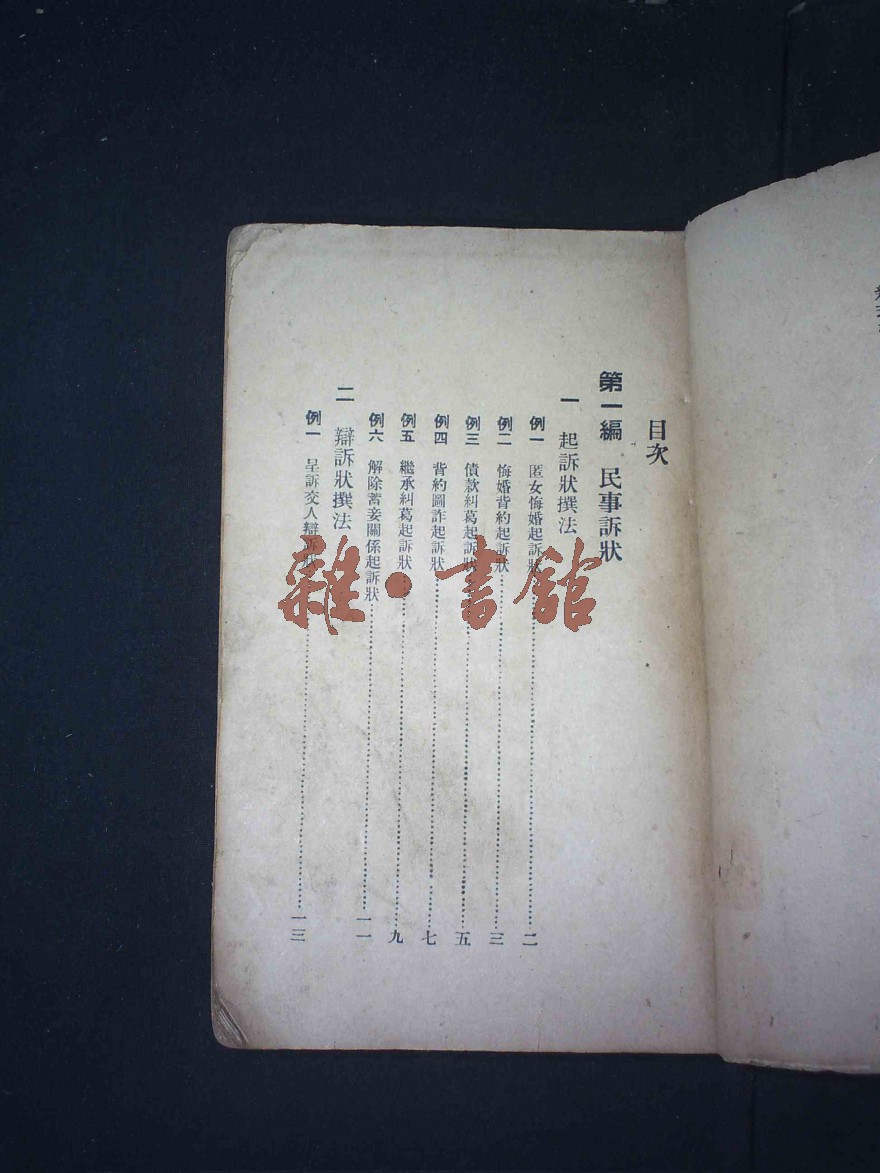 目次
第一編 民事訴狀
一 起訴狀撰法
例一 匿女悔婚起訴狀……二
例二 悔婚背約起訴狀……三
例三 債款糾葛起訴狀……五
例四 背約圖詐起訴狀……七
例五 繼承糾葛起訴狀……九
例六 解除蓄妾關係起訴狀……一一
二 辯訴狀撰法
例一 呈訴交人辯訴狀……一三
雜·書館